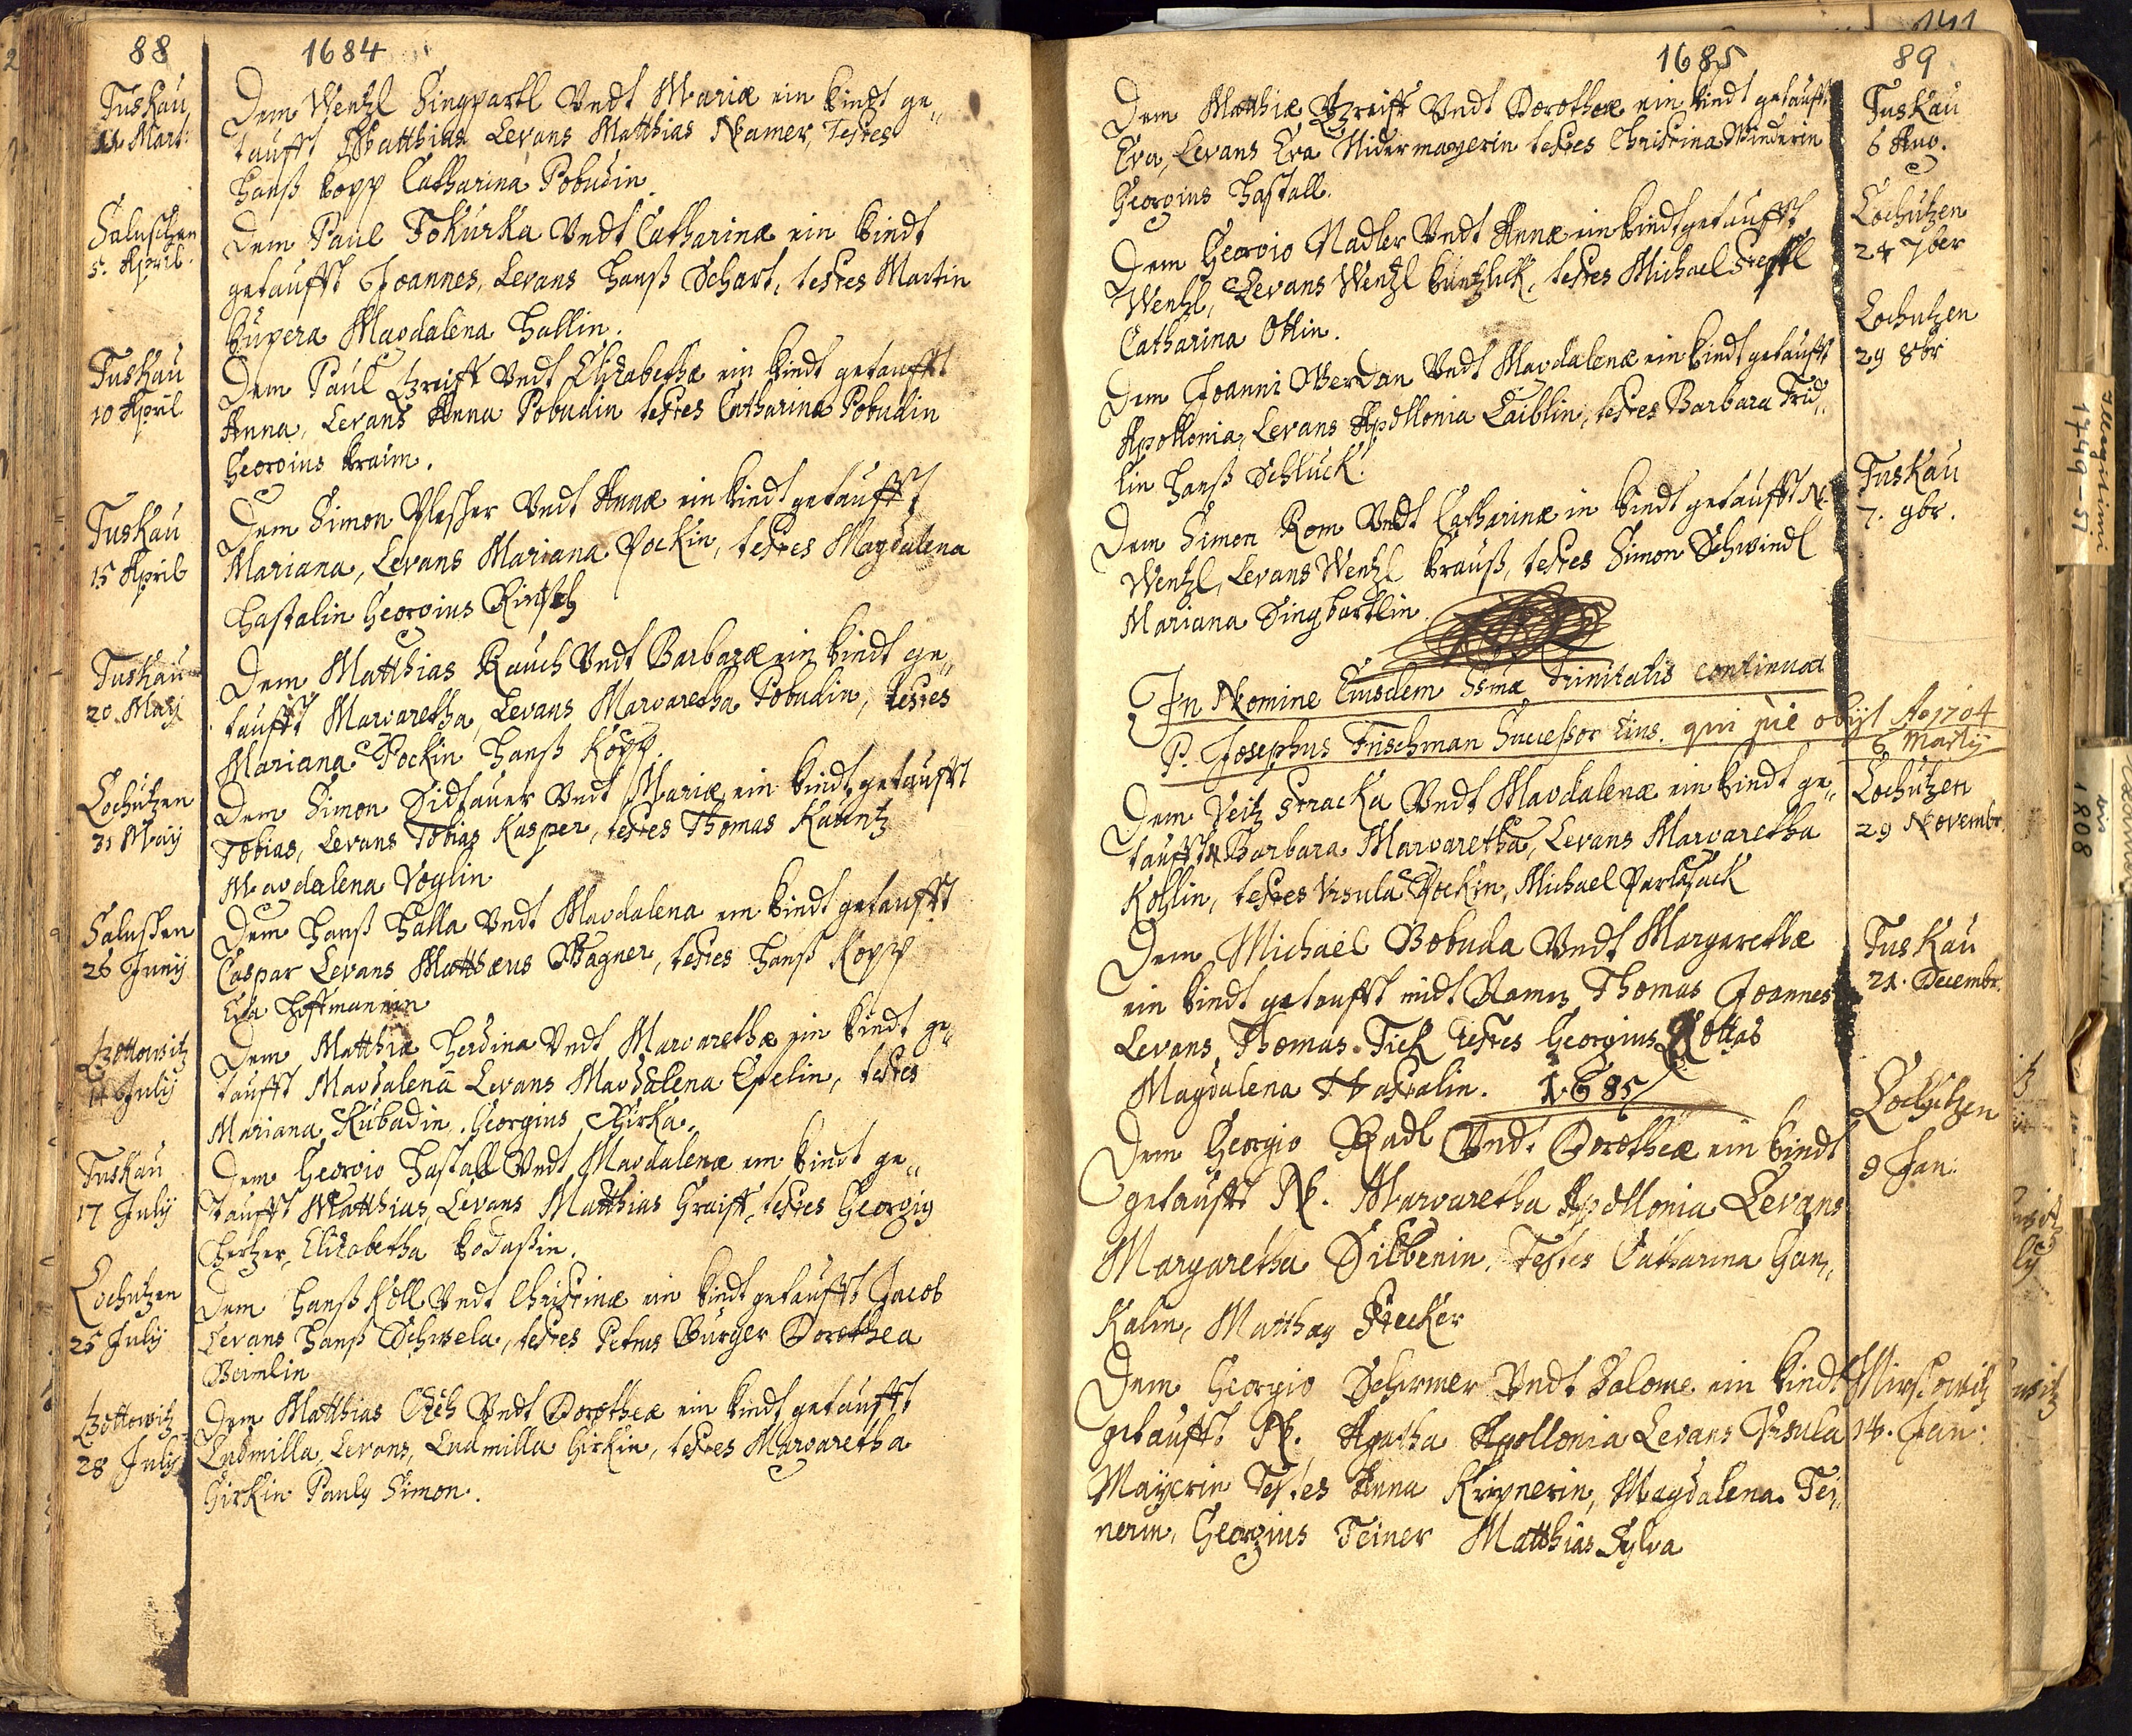 88
1684
Tuskau
11 Mart:
Dem Wentzl Singpartl Vndt Mariæ ein kindt ge„
taufft Matthias Levans Matthias Namer, Testes
Hanß Kopp Catharina Pobudin.
Saluschen
5. April.
Dem Paul Tokurka Vndt Catharinæ ein kindt
getaufft Joannes, Levans Hanß Schart, testes Martin
Kupera Magdalena Hallin.
Tuskau
10 April
Dem Paul Vndt Elizabethæ ein kindt getaufft
Anna, Levans Anna Pobudin testes Catharina Pobudin
Georgius Kraim.
Tuskau
15 April
Dem Simon Plescher Vndt Annæ ein kindt getaufft
Mariana, Levans Mariana Pockin, testes Magdalena
Hastalin Georgius
Tuskau
20 Maij
Dem Matthias Rauch Vndt Barbaræ ein kindt ge„
taufft Margaretha, Levans Margaretha Pobudin, testes
Mariana Pockin Hanß Kopp.
Lochutzen
31 Maij
Dem Simon Vndt Mariæ ein kindt getaufft
Tobias, Levans Tobias Kasper, testes Thomas Kauntz
Magdalena Voglin
Saluschen
26 Junij
Dem Hanß Halla Vndt Magdalena ein kindt getaufft
Caspar Levans Matthæus Wagner, testes Hanß Kopp
Eva Hoffmannin
14 July
Dem Matthiæ Herdina Vndt Margarethæ ein kindt ge„
taufft Magdalena Levans Magdalena, testes
Mariana Kubadin, Georgius Chirka.
Tuskau
17 July
Dem Georgio Hastall Vndt Magdalenæ ein kindt ge„
taufft Matthias, Levans Matthias Graiff, testes Georgig
Hertzer, Elizabetha Kodaßin.
Lochutzen
25 July
Dem HanßKöll Vndt Christinæ ein kindt getaufft Jacob
Levans Hanß Schwela, testes Petrus Burger Dorothea
28 July
Dem Matthias Vndt Dorotheæ ein kindt getaufft
Ludmilla, Levans, Ludmilla Girkin, testes Margaretha
Girkin Pauly Simon.
1685
89
Dem Matthiæ Vndt Dorotheæ ein kindt getaufft
Eva, Levans Eva Nidermayerin testes Christina Winderin
Georgius Hastall.
Tuskau
6 Aug.
Dem Georgio Nadler Vndt Annæ ein kindt getaufft
Wentzl, Levans Wentzl, testes Michael Steffl
Catharina Ottin.
Lochutzen
24 7ber
Dem Joanni Werdan Vndt Magdalenæ ein kindt getaufft
Apollonia, Levans Apollonia Laiblin, testes Barbara Frid„
lin Hanß Schluck.
Lochutzen
29 8br
Dem Simon Rom Vndt Catharinæ in kindt getaufft N.
Wentzl, Levans Wentzl Krauß, testes Simon Schwindl
Mariana Singbartlin
Tuskau
7. 9br.
In Nomine Eiusdem Ssmæ trinitatis continuat
P. Josephus Frischman Successor Eius. qui pie obijt Ao 1704
6 Martij
Dem Veitz Stracka Vndt Magdalenæ ein kindt ge„
taufft Barbara Margaretha, Levans Margaretha
Kohlin, testes Vrsula Pockin, Michael
Lochutzen
29 Novembr.
Dem Michael Bobuda Vndt Margarethæ
ein kindt getaufft mit Namen Thomas Joannes
Levans Thomas Tick testes Georgius
Magdalena Hastalin. 1685
Tuskau
21. Decembr.
Dem Georgio Radl Vndt Dorotheæ ein kindt
getaufft N. Margaretha Apollonia Levans
Margaretha Silbenin, testes Catharina Gan„
kalin, Matthay Stecker
Lochutzen
9 Jan:
Dem Georgio Schirmer Vndt Salome ein kindt
getaufft N. Agatha Apollonia Levans Vrsula
Mayerin Testes Anna Kripnerin, Magdalena Tei„
nerin, Georgius Teiner Matthias Sylva
14. Jan:
141
1749-51
1808